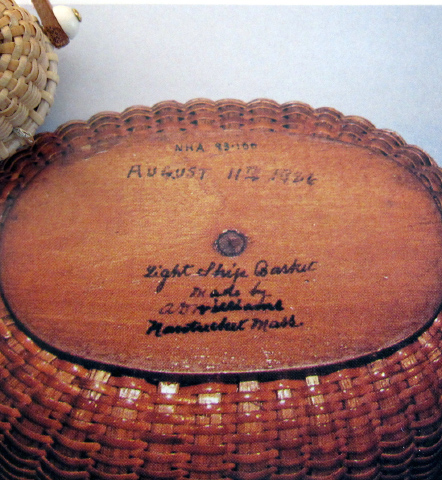 NHA 93·100
AUGUST 11TH 1926
Light Ship Basket
Made by
A D Williams
Nantucket Mass.